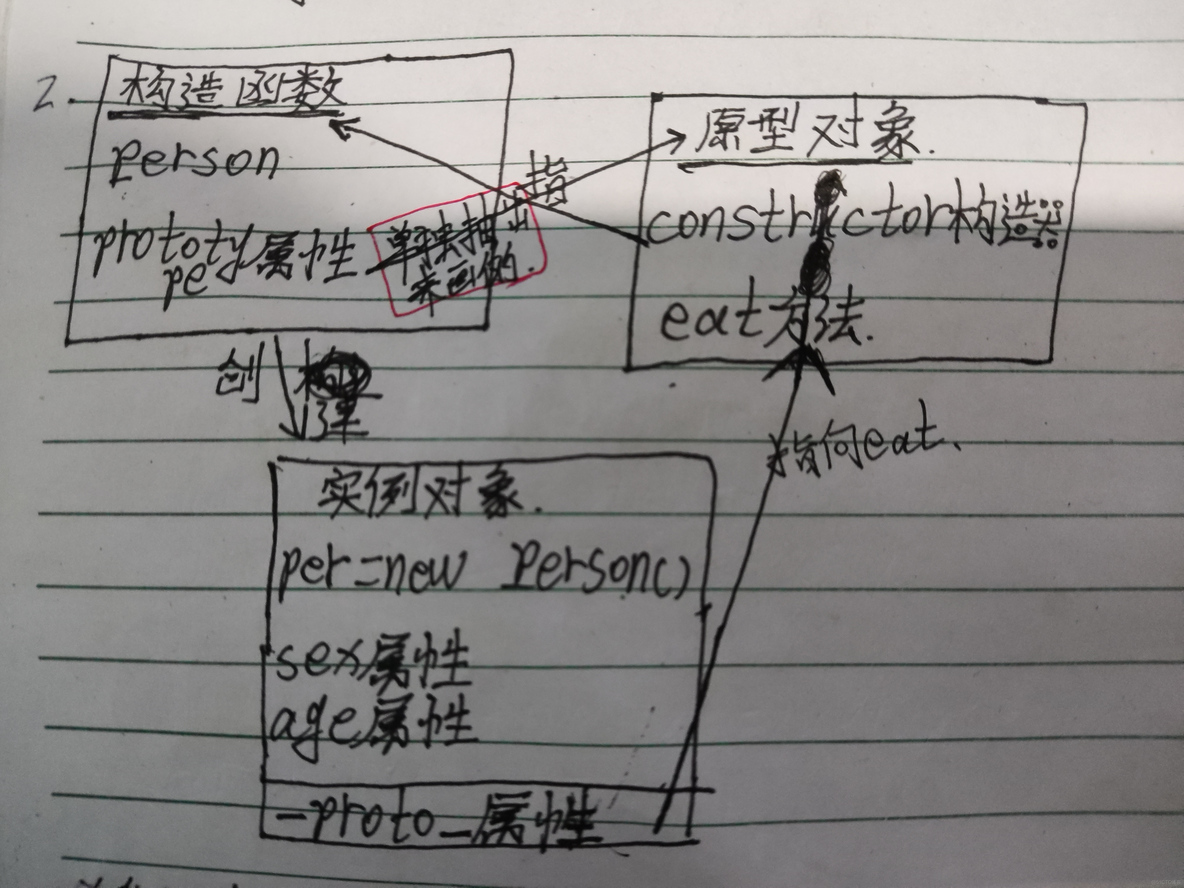 2.
构造函数
person
prototy属性
pe
单独抽出
来画的.
指
原型对象.
constructor构造器
eat方法.
创
指向eat.
实例对象.
per=new Person()
sex属性
age属性
-proto_属性